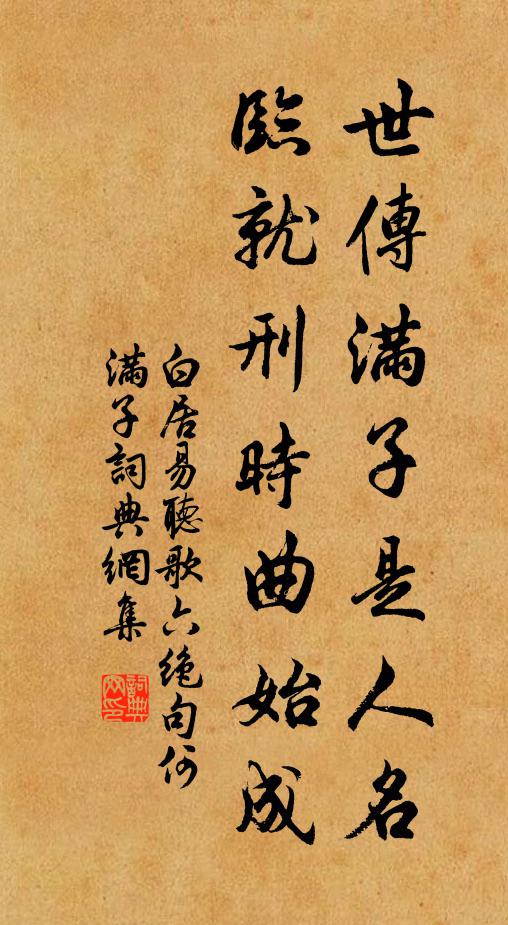 世傳滿子是人名
臨就刑時曲始成
白居易聽歌六絕句何
滿子詞典網集
詞典網印